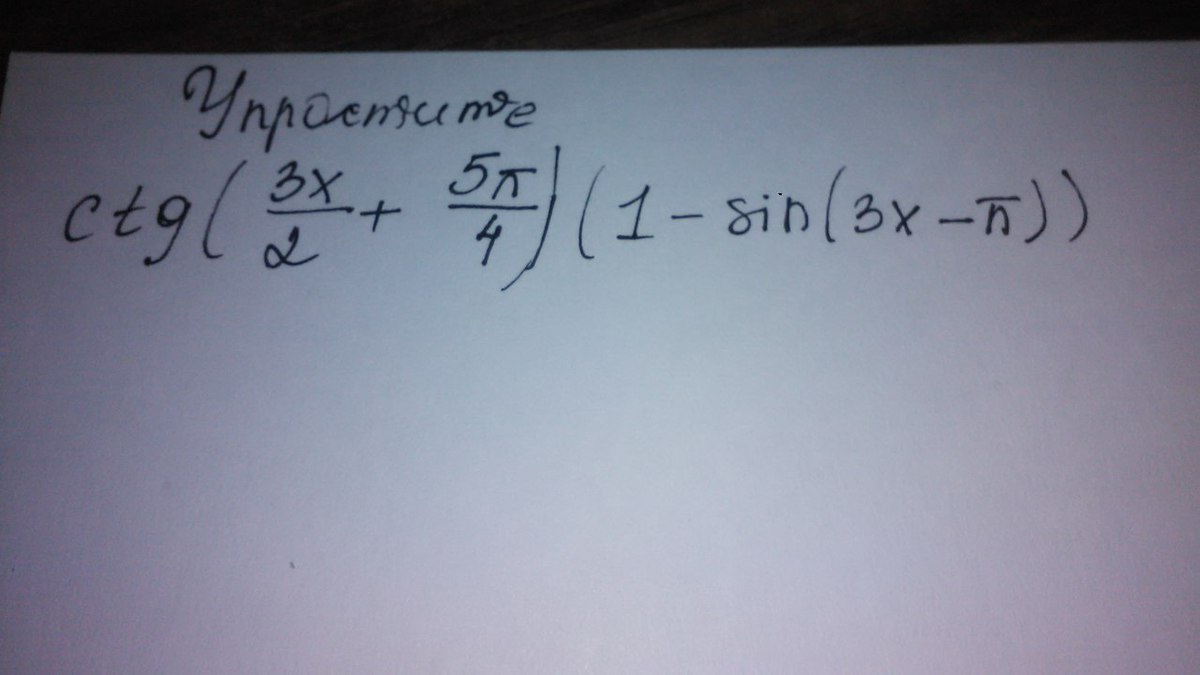 Упростите
ctg(3x/2 + 5π/4)(1 - sin(3x - π))